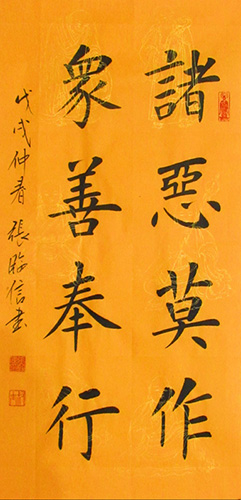 諸惡莫作
眾善奉行
戊戌仲春 張臨信書